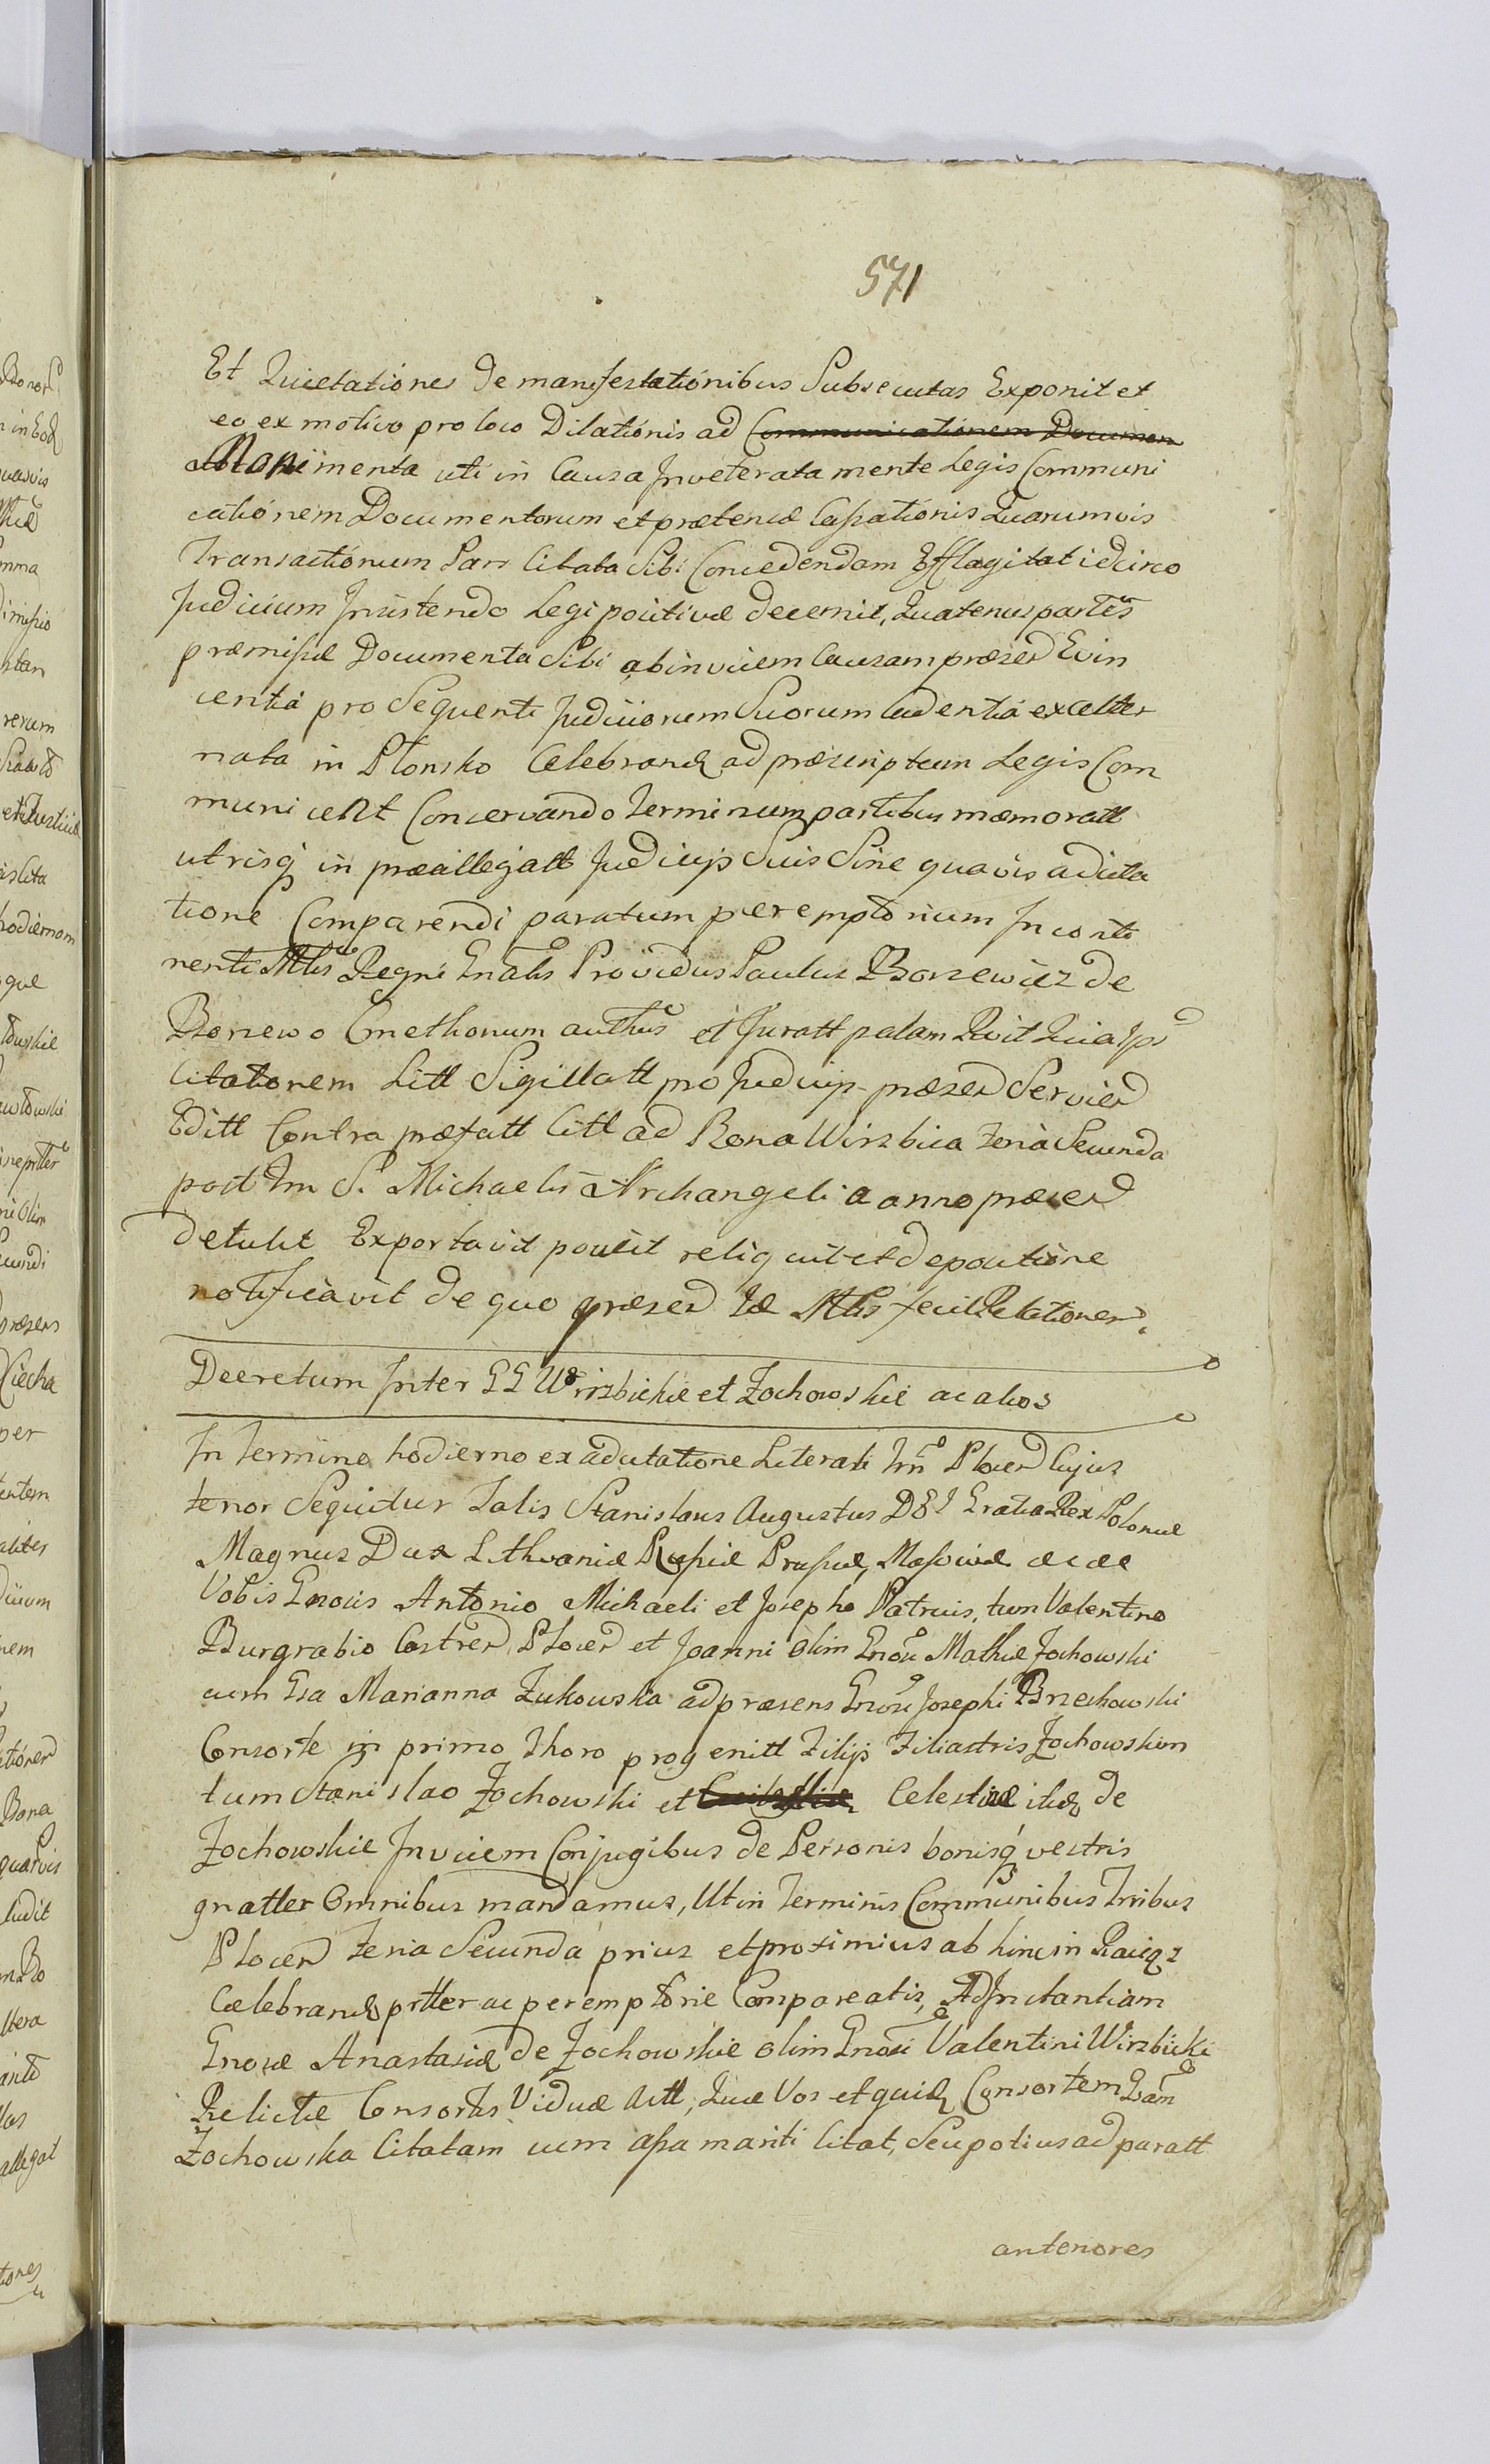 571
Et Quietationes de manifestationibus Subsecutas Exponit et
eo ex motivo pro loco Dilationis ad Communicationem Documen
Monimenta uti in Causa Inveterata mente Legis Communi
cationem Documentorum et prætensæ Cassationis Quarumvis
Transactionum Pars Citata Sibi Concedendam Efflagitat idcirco
Judicium Insistendo Legi positivæ decernit, Quatenus partes
præmissæ Documenta Sibi abinvicem Causam præsen Evin
centia pro Sequenti Judiciorum Suorum Cadentia ex alter
nata in Płonsko Celebrand ad præscriptum Legis Com
municent Conservando Terminum partibus memoratt
utrisq in præallegatt Judicijs Suis Sine quavis adcita
tione Comparendi paratum peremptorium In conti
nenti Mlis Regni Gnalis Providus Paulus Borzewicz de
Borzewo Cmethonum authus et Juratt palam Rcvit Quia Ips
Citatorem Litt Sigillatt pro Judicijs præsen Servien
Editt Contra præfatt Citt ad Bona Wirzbica Feria Secunda
post Fm S. Michaelis Archangeli a anno præsen
detulit Exportavit posuit reliquit et de positione
notificavit de quo præsen Idē Mlis fecit Relationem.
Decretum Inter GG Wirzbickie et Zochowskie ac alios
In Termino hodierno ex adcitatione Literali Trn Plocen Cujus
tenor Sequitur Talis Stanislaus Augustus DEI Gratia Rex Poloniæ
Magnus Dux Lithvaniæ Russiæ Prussiæ, Masoviæ &c &c
Vobis Gnosis Antonio Michaeli et Josepho Patruis, tum Valentino
Burgrabio Castren Plocen et Joanni olim Gnosi Mathiæ Zochowski
cum Gsa Marianna Zukowska ad præsens Gnosi Josephi Brzechowski
Consorte in primo Thoro progenitt Filijs Filiastris Zochowskim
tum Stanislao Zochowski et Celestinæ itid de
Zochowskie Invicem Conjugibus de Personis bonisq vestris
gnatler Omnibus mandamus, Ut in Terminis Communibus Trribus
Plocen Feria Secunda prius et proximius ab hinc in Raciąz
Celebrand prtler ac peremptorie Compareatis, Ad Instantiam
Gnosæ Anastasiæ de Zochowskie olim Gnosi Valentini Wirzbicki
Relictæ Consortis Viduæ Actt, Quæ Vos et quid Consortem Gsam
Zochowska Citatam cum assa mariti Citat, Seu potius ad paratt
anteriores